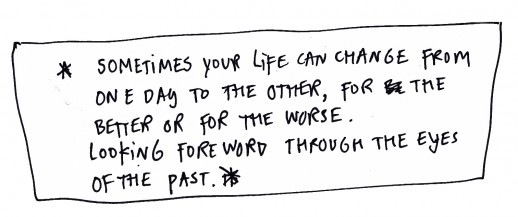 * SOMETIMES YOUR LIFE CAN CHANGE FROM
ONE DAY TO THE OTHER, FOR THE
BETTER OR FOR THE WORSE.
LOOKING FOREWORD THROUGH THE EYES
OF THE PAST. *